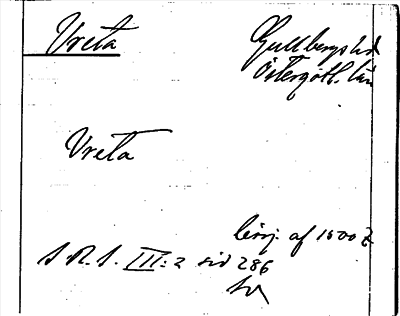 Vreta
Gullbergs hd
Östergötl. län
Vreta
börj. af 1500 t.
S.R.S. III:2 sid 286